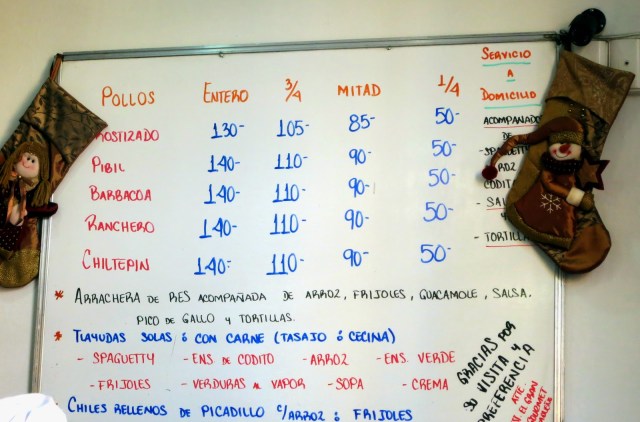 POLLOS ENTERO 3/4 MITAD 1/4
ROSTIZADO 130- 105- 85- 50-
PIBIL 140- 110- 90- 50-
BARBACOA 140- 110- 90- 50-
RANCHERO 140- 110- 90- 50-
CHILTEPIN 140- 110- 90- 50-
SERVICIO
A
DOMICILIO
ACOMPAÑADO
DE
- SPAGUETT
ROZ
CODIT
- SAL
- TORTILLA
* ARRACHERA DE RES ACOMPAÑADA DE ARROZ, FRIJOLES, GUACAMOLE, SALSA.
PICO DE GALLO Y TORTILLAS.
* TLAYUDAS SOLAS ó CON CARNE (TASAJO ó CECINA)
- SPAGUETTY - ENS DE CODITO - ARROZ - ENS. VERDE
- FRIJOLES - VERDURAS AL VAPOR - SOPA - CREMA
* CHILES RELLENOS DE PICADILLO C/ARROZ ó FRIJOLES
GRACIAS POR
SU VISITA Y
PREFERENCIA
ATTE.
EL GRAN
GOURMET